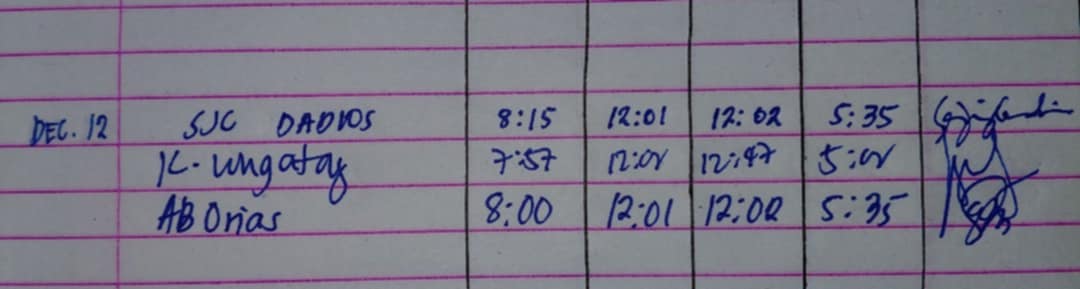 DEC. 12 SJC DADIOS 8:15 12:01 12:02 5:35
K. Ungatay 7:57 12:01 12:47 5:01
AB Orias 8:00 12:01 12:02 5:35